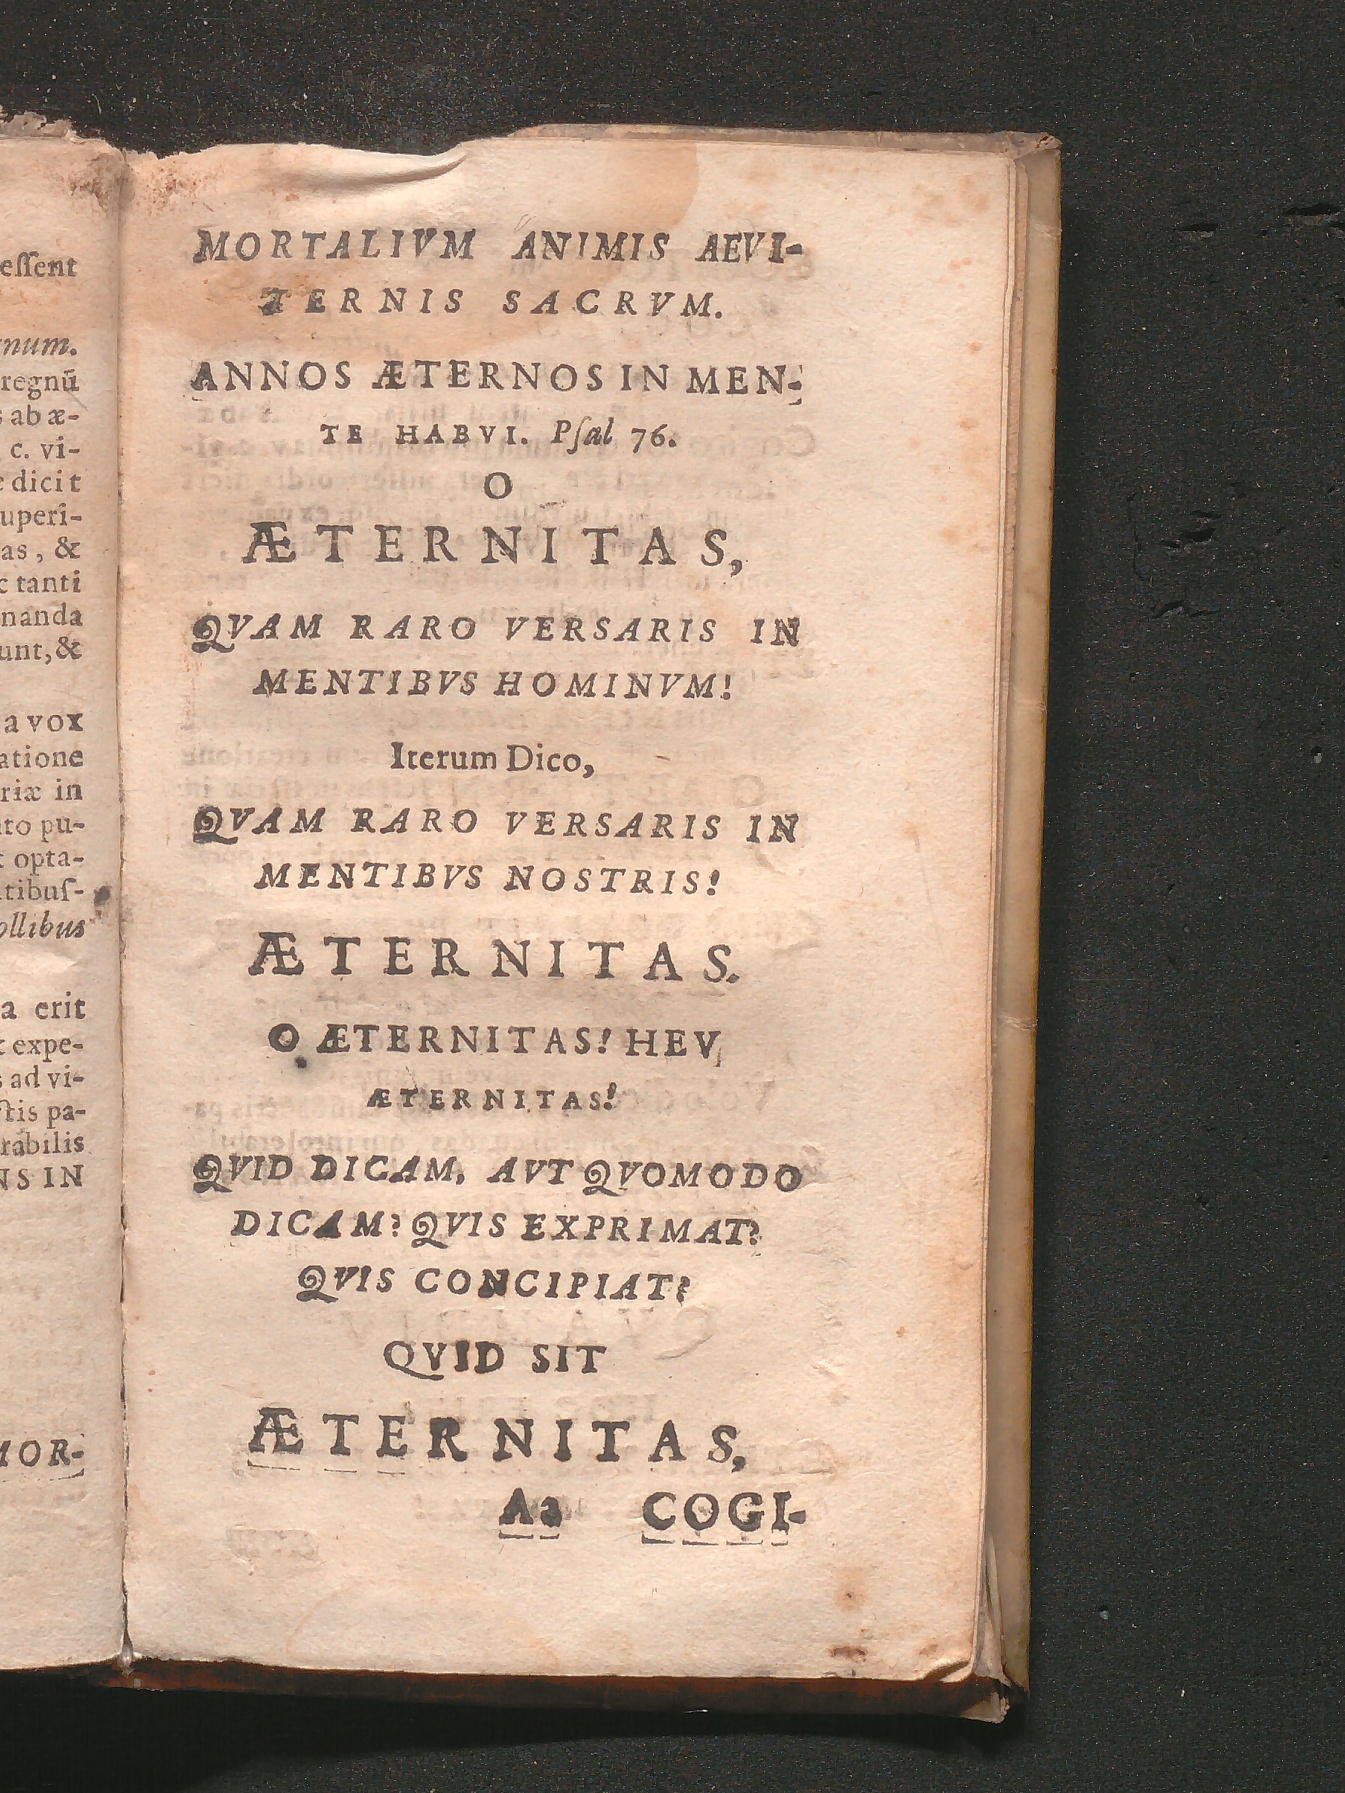 eſſent
num.
regnū
s ab æ-
c. vi-
dicit
uperi-
as, &
c tanti
nanda
unt, &
a vox
atione
riæ in
nto pu-
t opta-
ntibuſ-
ollibus
a erit
t expe-
s ad vi-
ſtis pa-
rabilis
NS IN
MOR-
MORTALIVM ANIMIS AEVI-
TERNIS SACRVM.
ANNOS ÆTERNOS IN MEN-
TE HABVI. Pſal 76.
O
ÆTERNITAS,
QVAM RARO VERSARIS IN
MENTIBVS HOMINVM!
Iterum Dico,
QVAM RARO VERSARIS IN
MENTIBVS NOSTRIS!
ÆTERNITAS.
O ÆTERNITAS! HEV,
ÆTERNITAS!
QVID DICAM, AVT QVOMODO
DICAM? QVIS EXPRIMAT?
QVIS CONCIPIAT?
QVID SIT
ÆTERNITAS,
Aa COGI-